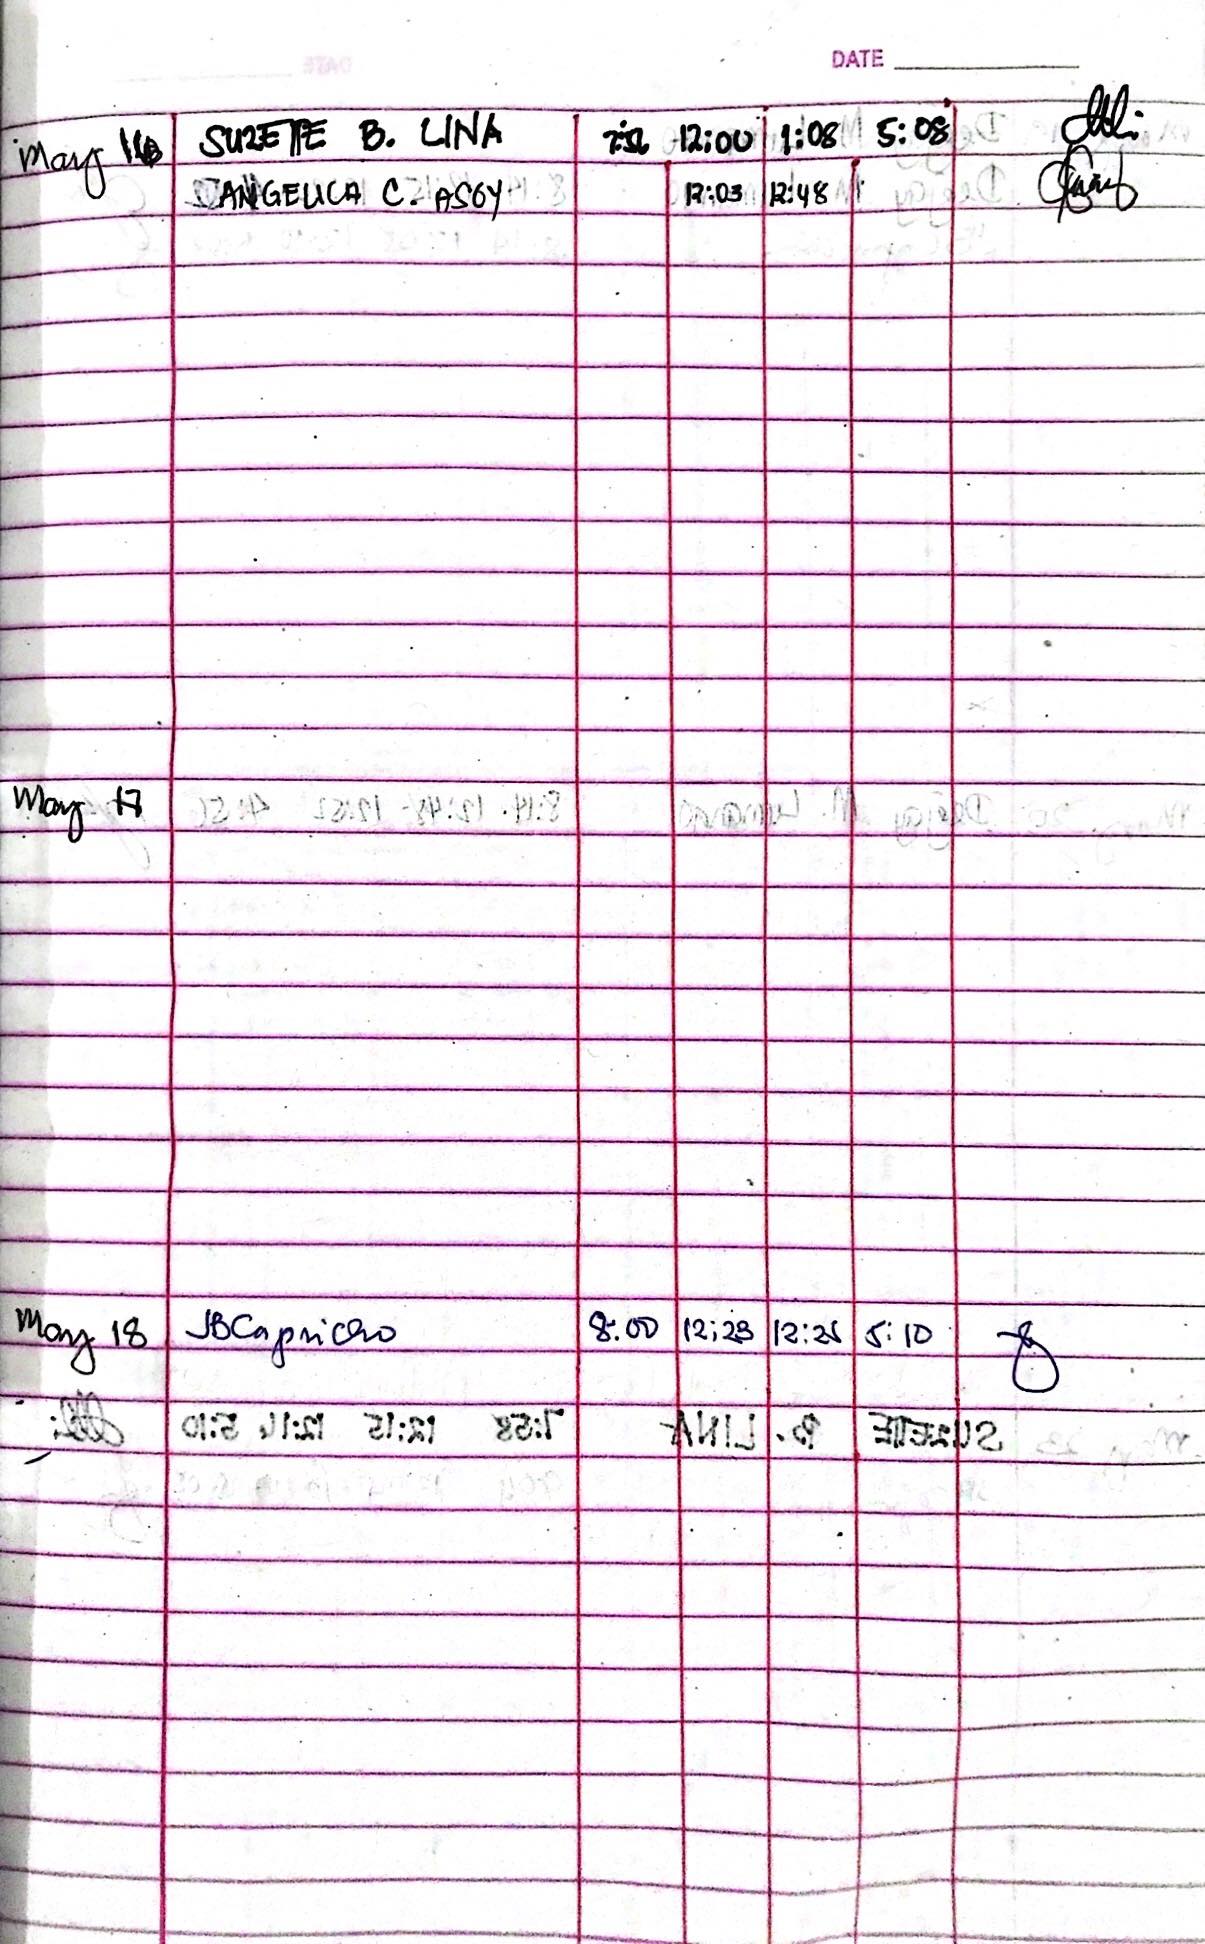 DATE
May 16 SUZETTE B. LINA 12:00 1:08 5:08
ANGELICA C. ASOY 12:03 12:48
May 17
May 18 JBCapricho 8:00 12:23 12:25 5:10